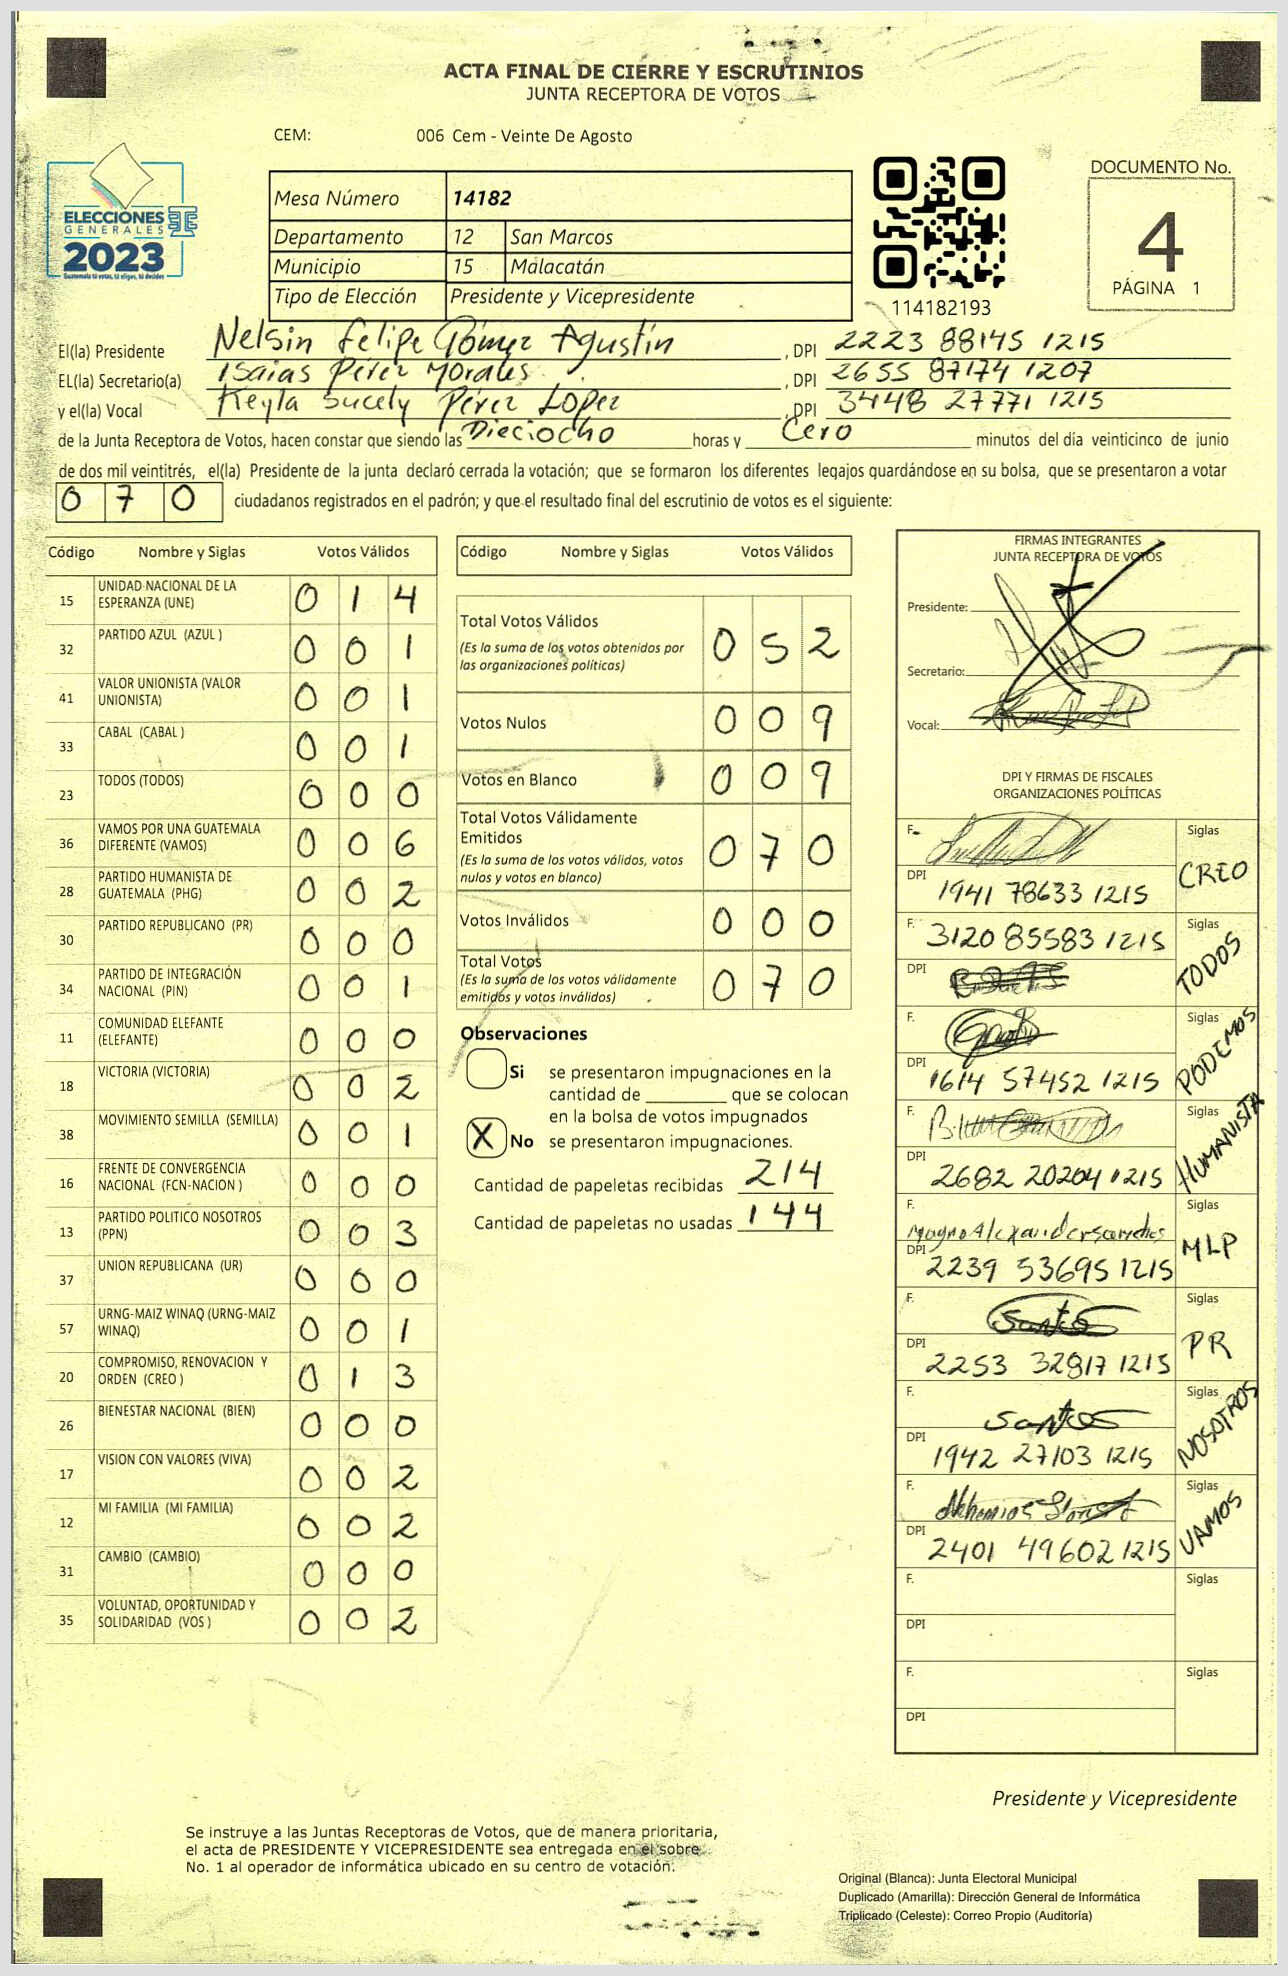 ACTA FINAL DE CIERRE Y ESCRUTINIOS
JUNTA RECEPTORA DE VOTOS
CEM: 006 Cem - Veinte De Agosto
ELECCIONES
GENERALES
2023
Guatemala tú votas, tú eliges, tú decides
Mesa Número 14182
Departamento 12 San Marcos
Municipio 15 Malacatán
Tipo de Elección Presidente y Vicepresidente
114182193
DOCUMENTO No.
4
PÁGINA 1
El(la) Presidente Nelsin Felipe Gómez Agustín , DPI 2223 88145 1215
EL(la) Secretario(a) Isaias Pérez Morales , DPI 2655 87174 1207
y el(la) Vocal Keyla Sucely Pérez Lopez , DPI 3448 27771 1215
de la Junta Receptora de Votos, hacen constar que siendo las Dieciocho horas y Cero minutos del día veinticinco de junio
de dos mil veintitrés, el(la) Presidente de la junta declaró cerrada la votación; que se formaron los diferentes legajos guardándose en su bolsa, que se presentaron a votar
0 7 0 ciudadanos registrados en el padrón; y que el resultado final del escrutinio de votos es el siguiente:
Código Nombre y Siglas Votos Válidos
15 UNIDAD NACIONAL DE LA ESPERANZA (UNE) 0 1 4
32 PARTIDO AZUL (AZUL ) 0 0 1
41 VALOR UNIONISTA (VALOR UNIONISTA) 0 0 1
33 CABAL (CABAL ) 0 0 1
23 TODOS (TODOS) 0 0 0
36 VAMOS POR UNA GUATEMALA DIFERENTE (VAMOS) 0 0 6
28 PARTIDO HUMANISTA DE GUATEMALA (PHG) 0 0 2
30 PARTIDO REPUBLICANO (PR) 0 0 0
34 PARTIDO DE INTEGRACIÓN NACIONAL (PIN) 0 0 1
11 COMUNIDAD ELEFANTE (ELEFANTE) 0 0 0
18 VICTORIA (VICTORIA) 0 0 2
38 MOVIMIENTO SEMILLA (SEMILLA) 0 0 1
16 FRENTE DE CONVERGENCIA NACIONAL (FCN-NACION ) 0 0 0
13 PARTIDO POLITICO NOSOTROS (PPN) 0 0 3
37 UNION REPUBLICANA (UR) 0 0 0
57 URNG-MAIZ WINAQ (URNG-MAIZ WINAQ) 0 0 1
20 COMPROMISO, RENOVACION Y ORDEN (CREO ) 0 1 3
26 BIENESTAR NACIONAL (BIEN) 0 0 0
17 VISION CON VALORES (VIVA) 0 0 2
12 MI FAMILIA (MI FAMILIA) 0 0 2
31 CAMBIO (CAMBIO) 0 0 0
35 VOLUNTAD, OPORTUNIDAD Y SOLIDARIDAD (VOS ) 0 0 2
Código Nombre y Siglas Votos Válidos
Total Votos Válidos 0 5 2
(Es la suma de los votos obtenidos por
las organizaciones políticas)
Votos Nulos 0 0 9
Votos en Blanco 0 0 9
Total Votos Válidamente
Emitidos 0 7 0
(Es la suma de los votos válidos, votos
nulos y votos en blanco)
Votos Inválidos 0 0 0
Total Votos 0 7 0
(Es la suma de los votos válidamente
emitidos y votos inválidos)
Observaciones
Si se presentaron impugnaciones en la
cantidad de ________ que se colocan
en la bolsa de votos impugnados
X No se presentaron impugnaciones.
Cantidad de papeletas recibidas 214
Cantidad de papeletas no usadas 144
FIRMAS INTEGRANTES
JUNTA RECEPTORA DE VOTOS
Presidente:
Secretario:
Vocal:
DPI Y FIRMAS DE FISCALES
ORGANIZACIONES POLÍTICAS
F. Siglas
DPI 1941 78633 1215 CREO
F. 3120 85583 1215 Siglas
DPI TODOS
F. Siglas
DPI 1614 57452 1215 PODEMOS
F. Siglas
DPI 2682 20204 1215 HUMANISTA
F. Siglas
DPI 2239 53695 1215 MLP
F. Santos Siglas
DPI 2253 32817 1215 PR
F. Santos Siglas
DPI 1942 27103 1215 NOSOTROS
F. Siglas
DPI 2401 49602 1215 VAMOS
F. Siglas
DPI
F. Siglas
DPI
Presidente y Vicepresidente
Se instruye a las Juntas Receptoras de Votos, que de manera prioritaria,
el acta de PRESIDENTE Y VICEPRESIDENTE sea entregada en el sobre
No. 1 al operador de informática ubicado en su centro de votación.
Original (Blanca): Junta Electoral Municipal
Duplicado (Amarilla): Dirección General de Informática
Triplicado (Celeste): Correo Propio (Auditoría)